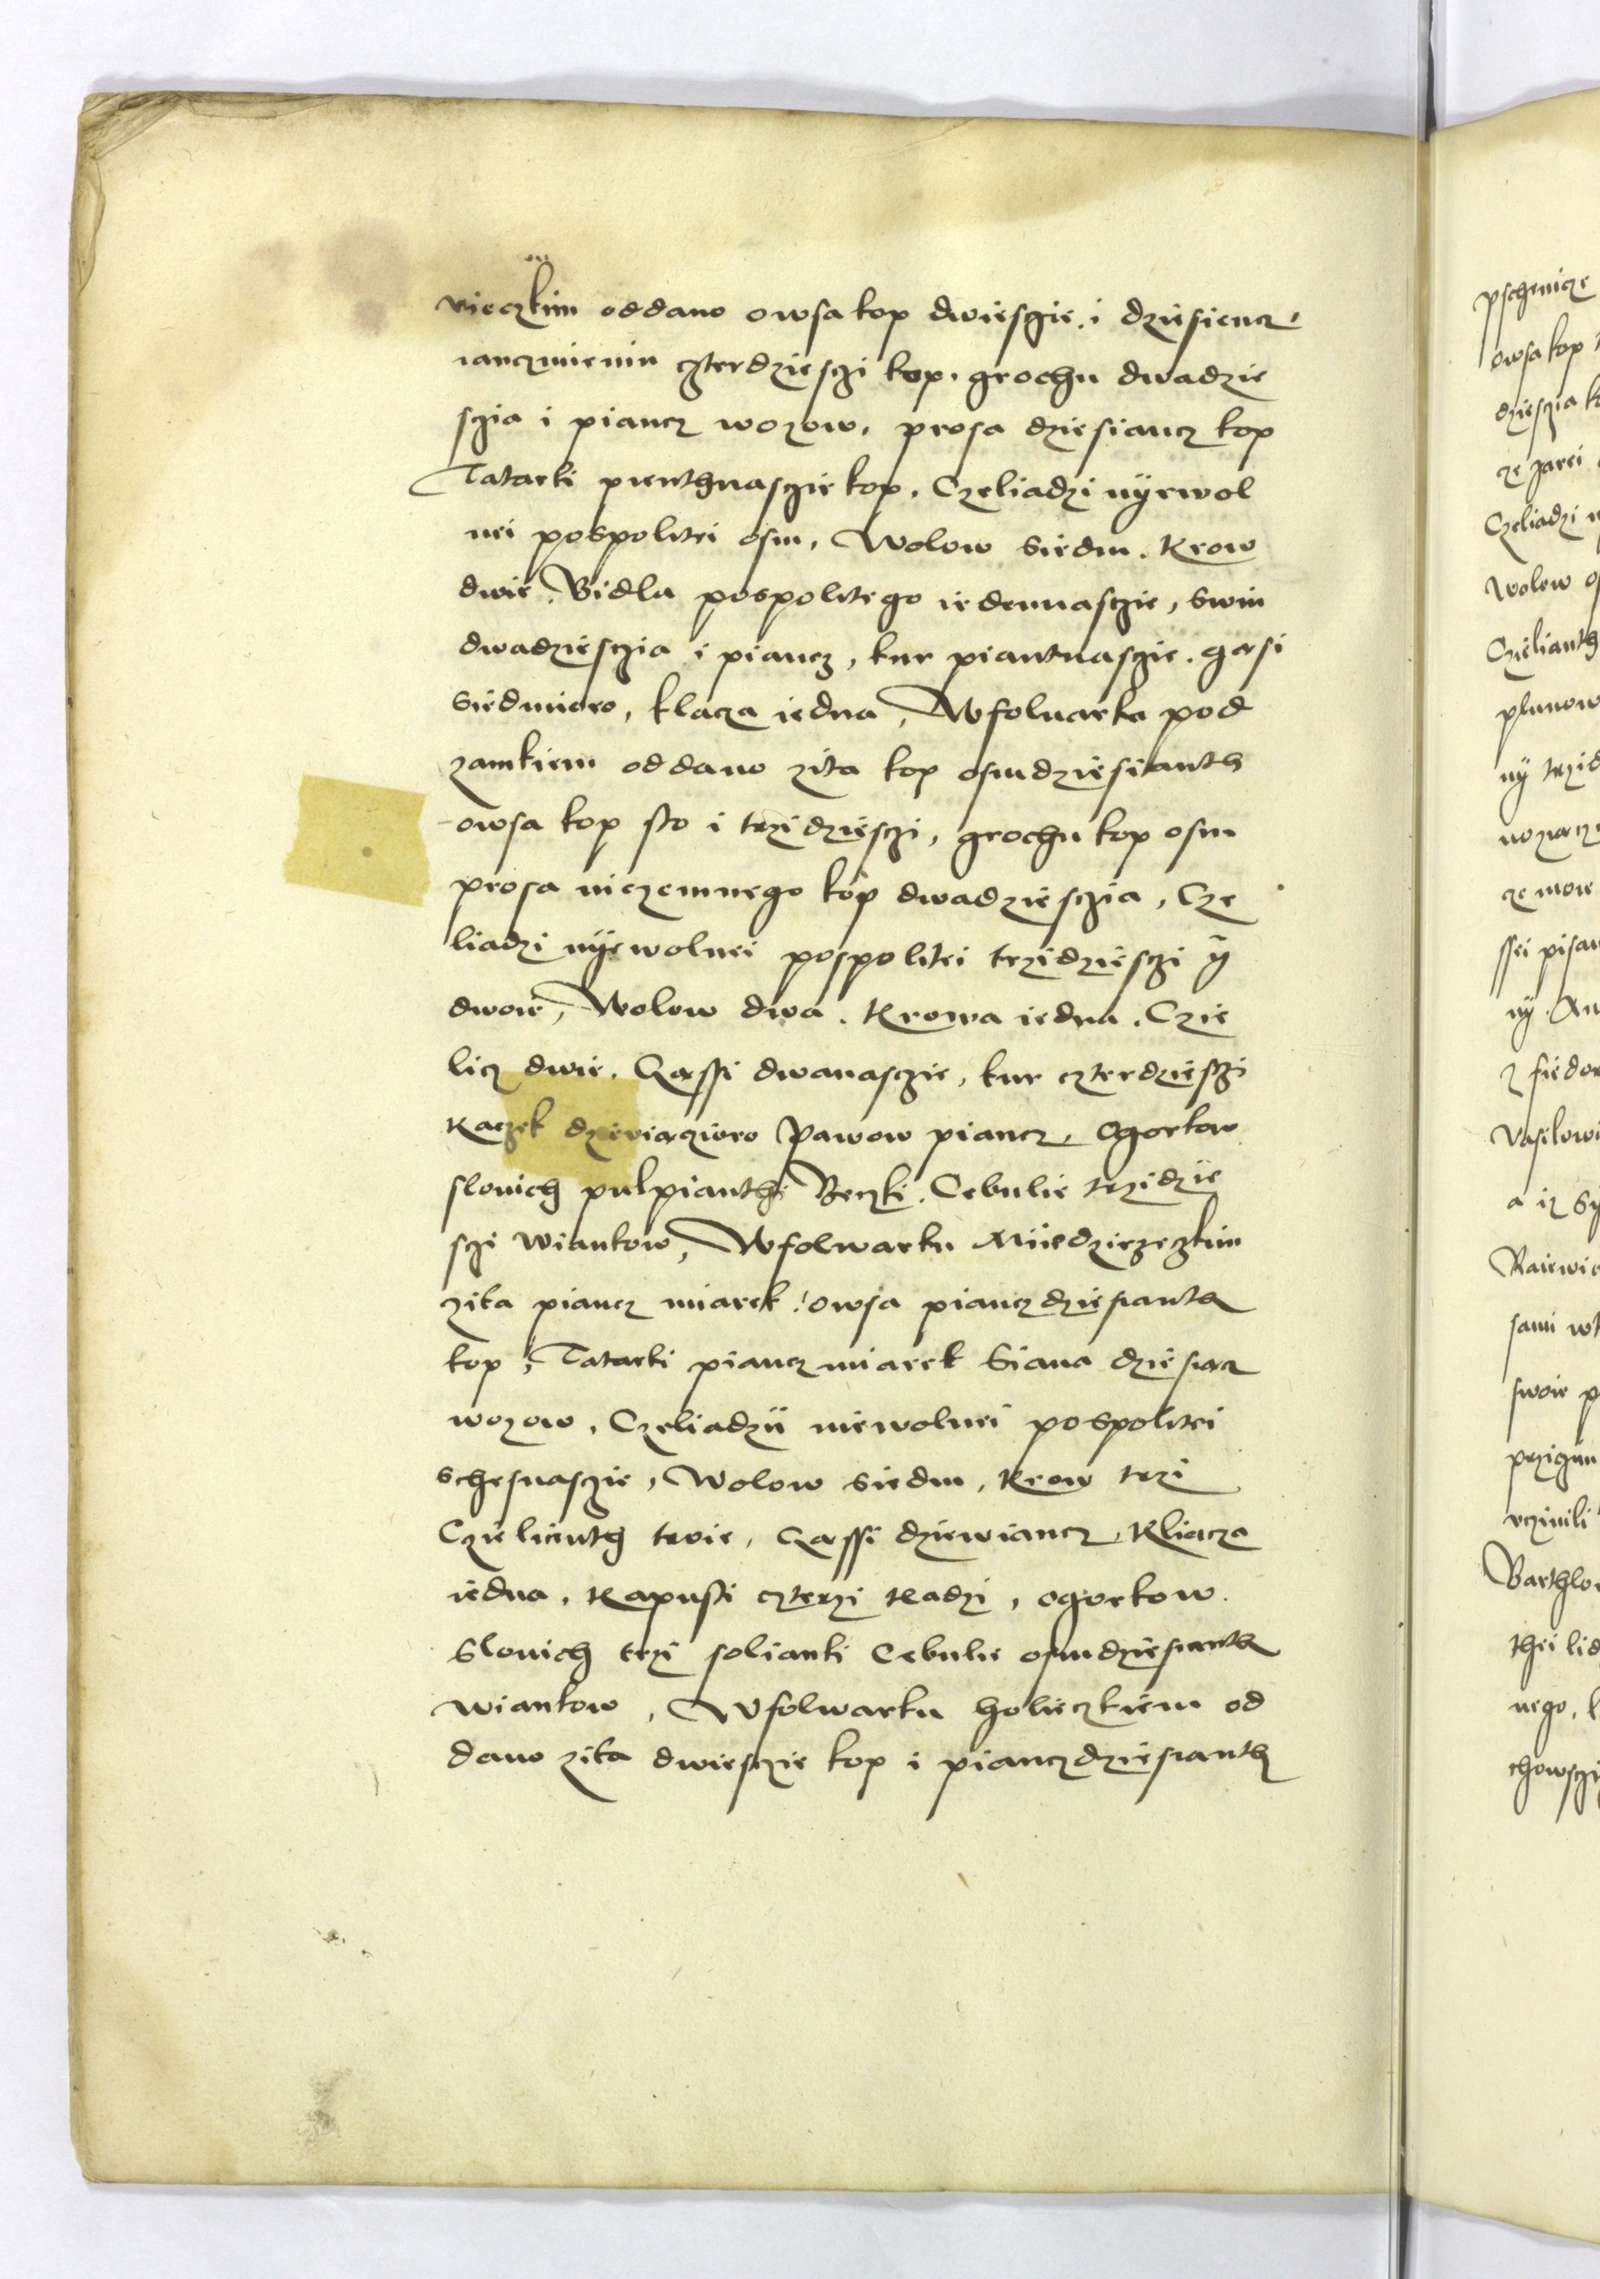 vieczkim oddano owsa kop dwieszie. i dziesiencz,
ianczmieniu czterdzieszi kop, grochu dwadzie
szia i piancz wozow, prosa dziesiancz kop
Tatarki pienthnaszie kop, Czeliadzi nÿewol
nei pospolitei osm, Wolow siedm. Krow
dwie, Bidla pospolitego iedennaszie, swin
dwadzieszia i piancz, kur piantnaszie. gęsi
siedmioro, klacza iedna, Wfolvarka pod
zamkiem oddano zita kop osmdziesianth
owsa kop sto i trzidzieszi, grochu kop osm
prosa niczemnego kop dwadzieszia, Cze
liadzi nÿewolnei pospolitei trzidzieszi ÿ
dwoie, Wolow dwa. Krowa iedna. Czie
licz dwie. Gęssi dwanaszie, kur czterdzieszi
Kaczek dzieviączioro Pawow piancz, Ogorkow
slonich pulpianthi Beczki. Cebulie trzidzie
szi Wiankow, Wfolwarku Miiedzirzeczkim
zita piancz miarek! owsa pianczdziesianth
kop, Tatarki piancz miarek Siana dziesiącz
wozow, Czeliadzii niewolnei pospolitei
schesnaszie, Wolow siedm, Krow trzi
Czielienth troie, Gęssi dziewiancz, Kliacza
iedna, Kapusti czterzi Kadzi, ogorkow.
Slonich trzi solianki Cebulie osmdziesianth
Wiankow, Wfolwarku holieczkiem od
dano zita dwieszie kop i pianczdziesianth
pschenicze
owsa kop
dzieszia
Czeliadzi
Wolow
Czielianth
ssei
Raiewic
sami
swoie
nego,